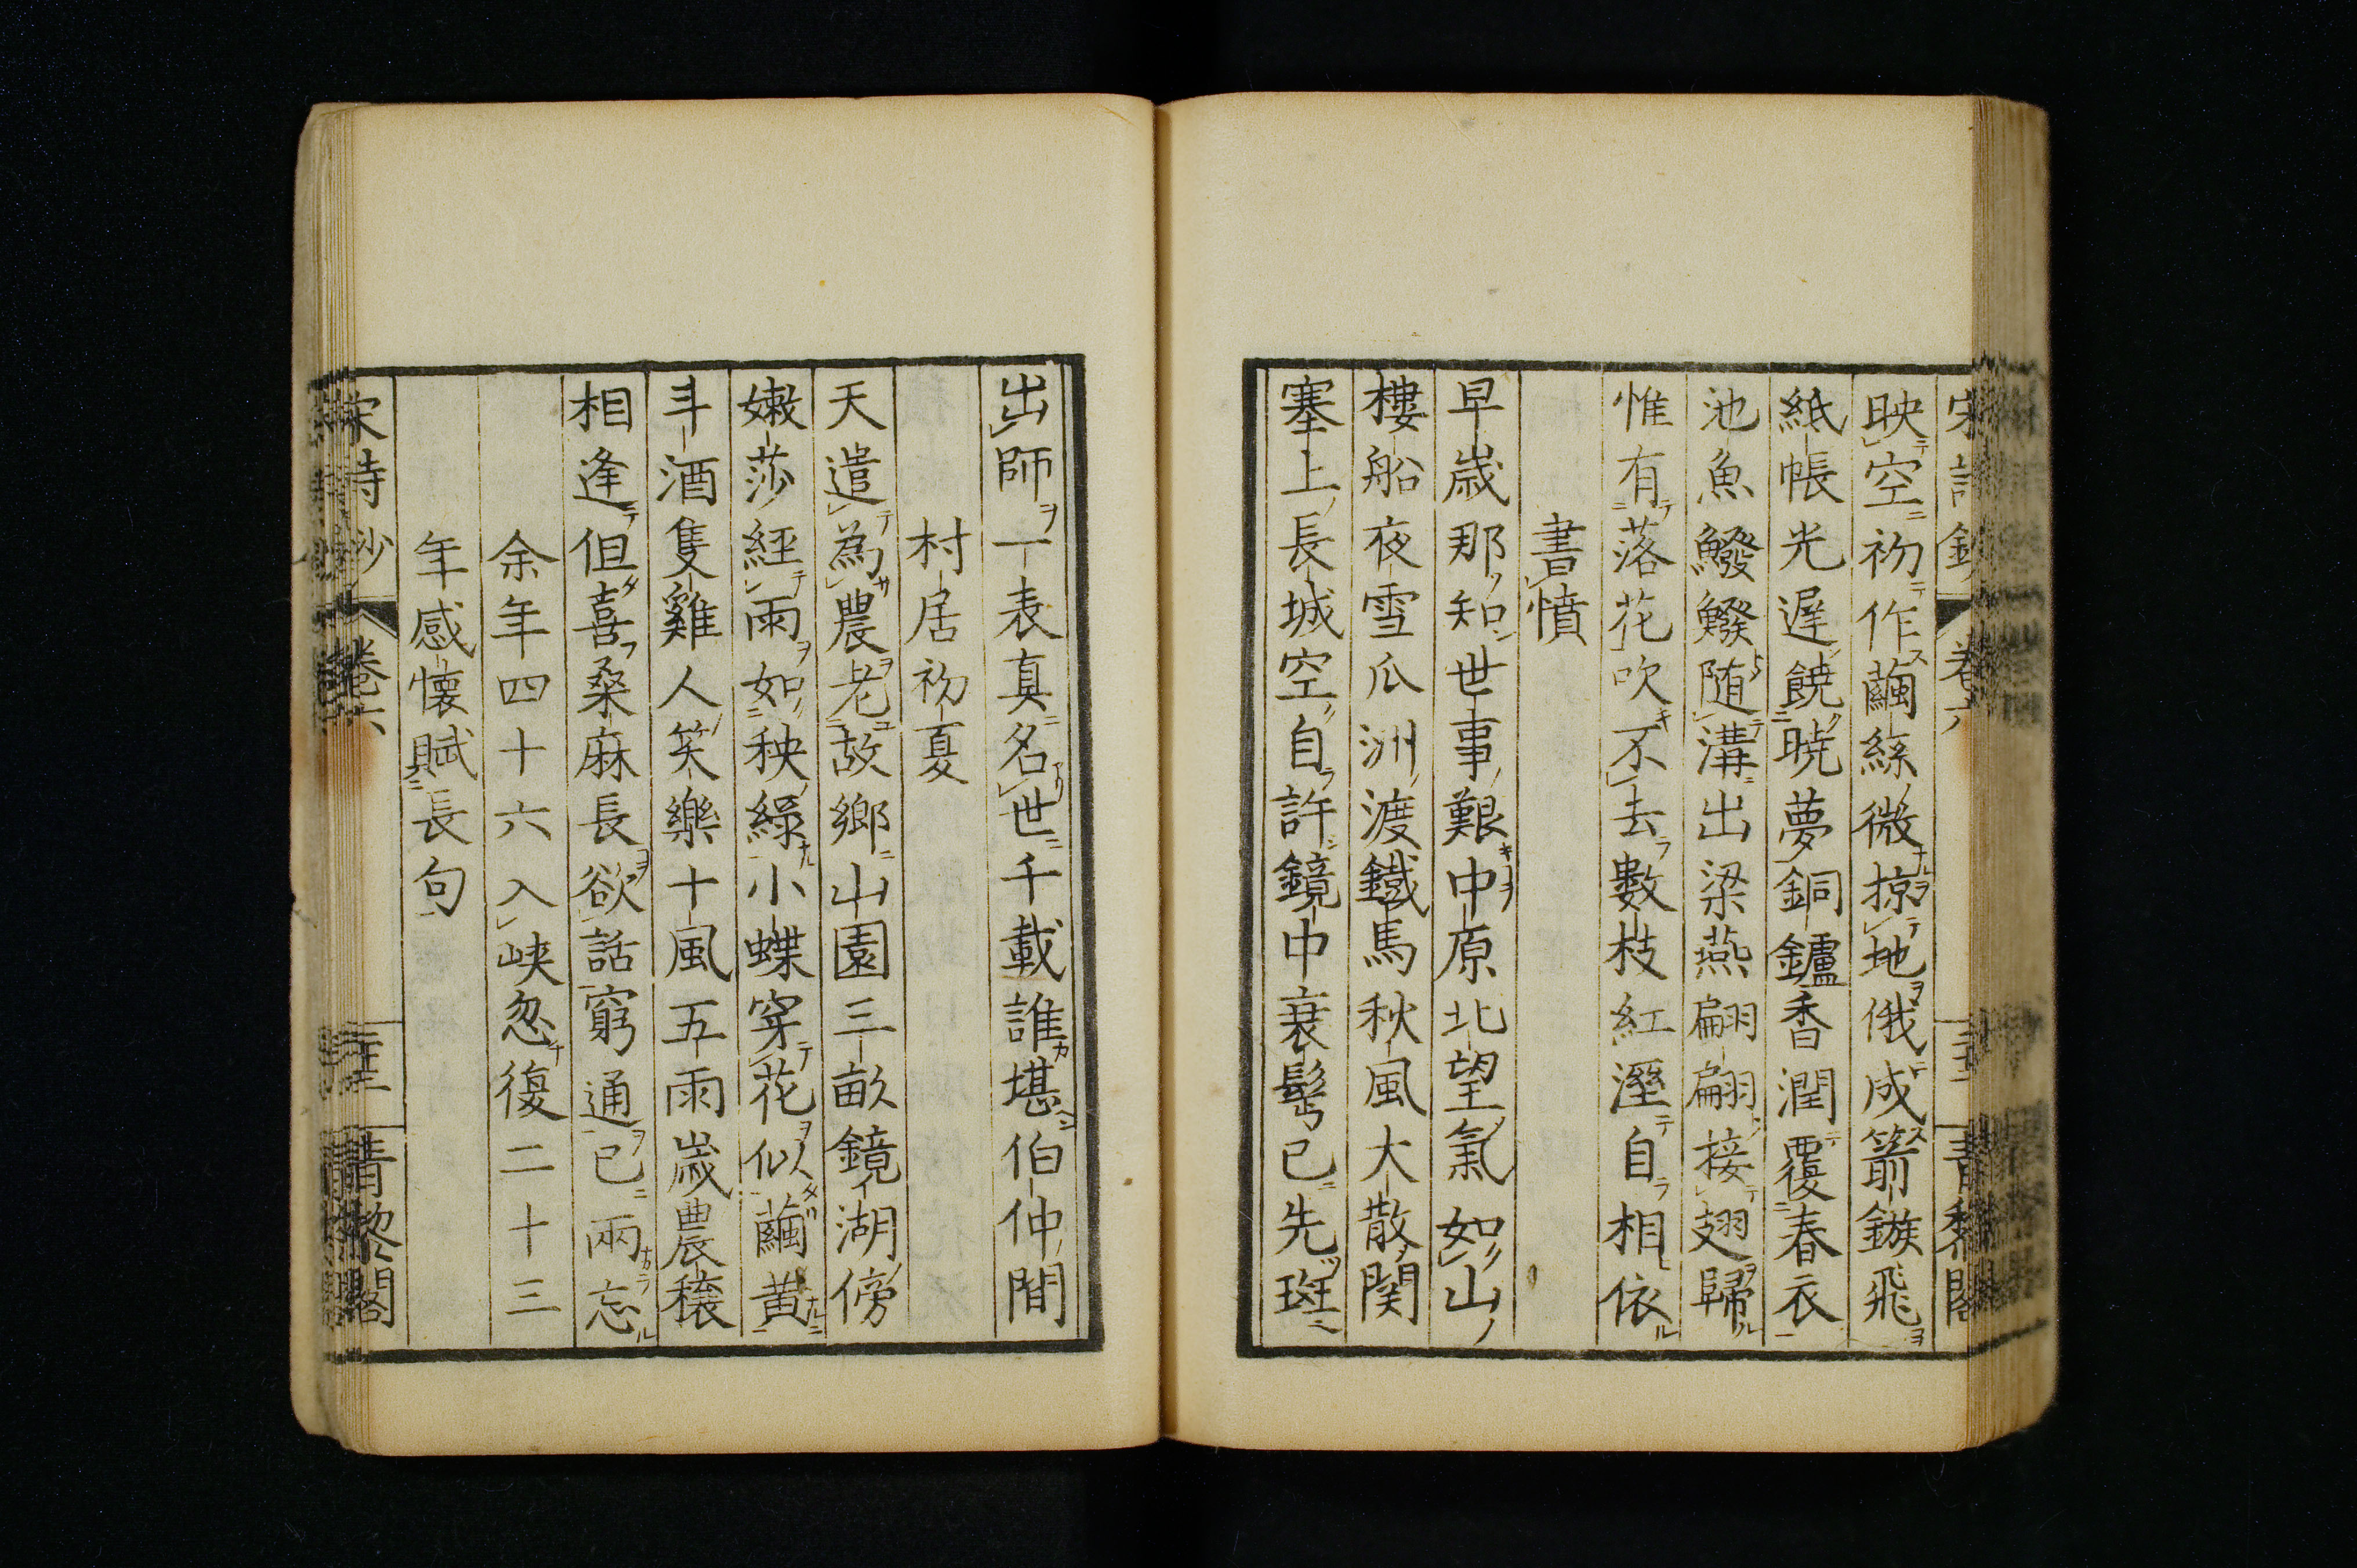 映空初作繭絲微掠地俄成箭鏃飛
紙帳光遲饒曉夢銅鑪香潤覆春衣
池魚鱍鱍随溝出梁燕翩翩接翅歸
惟有落花吹不去數枝紅溼自相依
書憤
早歲那知世事艱中原北望氣如山
樓船夜雪瓜洲渡鐵馬秋風大散関
塞上長城空自許鏡中衰髩已先斑
出師一表真名世千載誰堪伯仲間
村居初夏
天遣為農老故鄉山園三畝鏡湖傍
嫩莎經雨如秧綠小蝶穿花似繭黄
斗酒隻雞人笑樂十風五雨歲農穰
相逢但喜桑麻長欲話窮通已兩忘
余年四十六入峽忽復二十三
年感懐賦長句
宋詩鈔 卷六 青黎閣